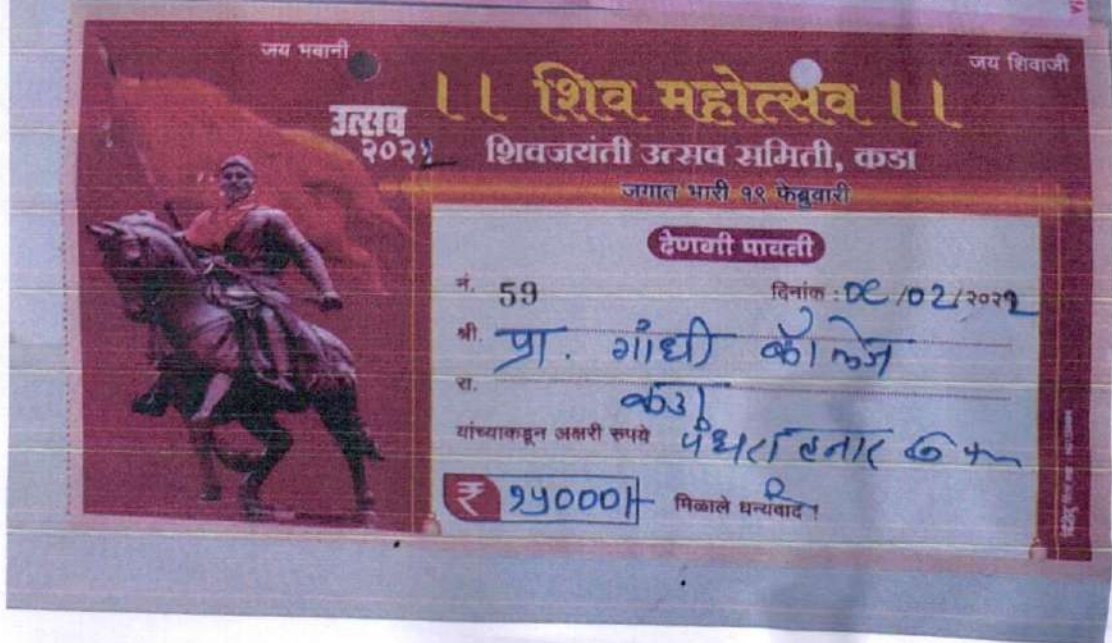 जय भवानी
जय शिवाजी
।। शिव महोत्सव ।।
उत्सव
२०२१
शिवजयंती उत्सव समिती, कडा
जगात भारी १९ फेब्रुवारी
देणगी पावती
नं. 59
दिनांक : ०८/०२/२०२१
श्री. प्रा. गांधी कॉलेज
रा. कडा
यांच्याकडून अक्षरी रुपये पंधरा हजार
₹ १५०००/- मिळाले धन्यवाद !